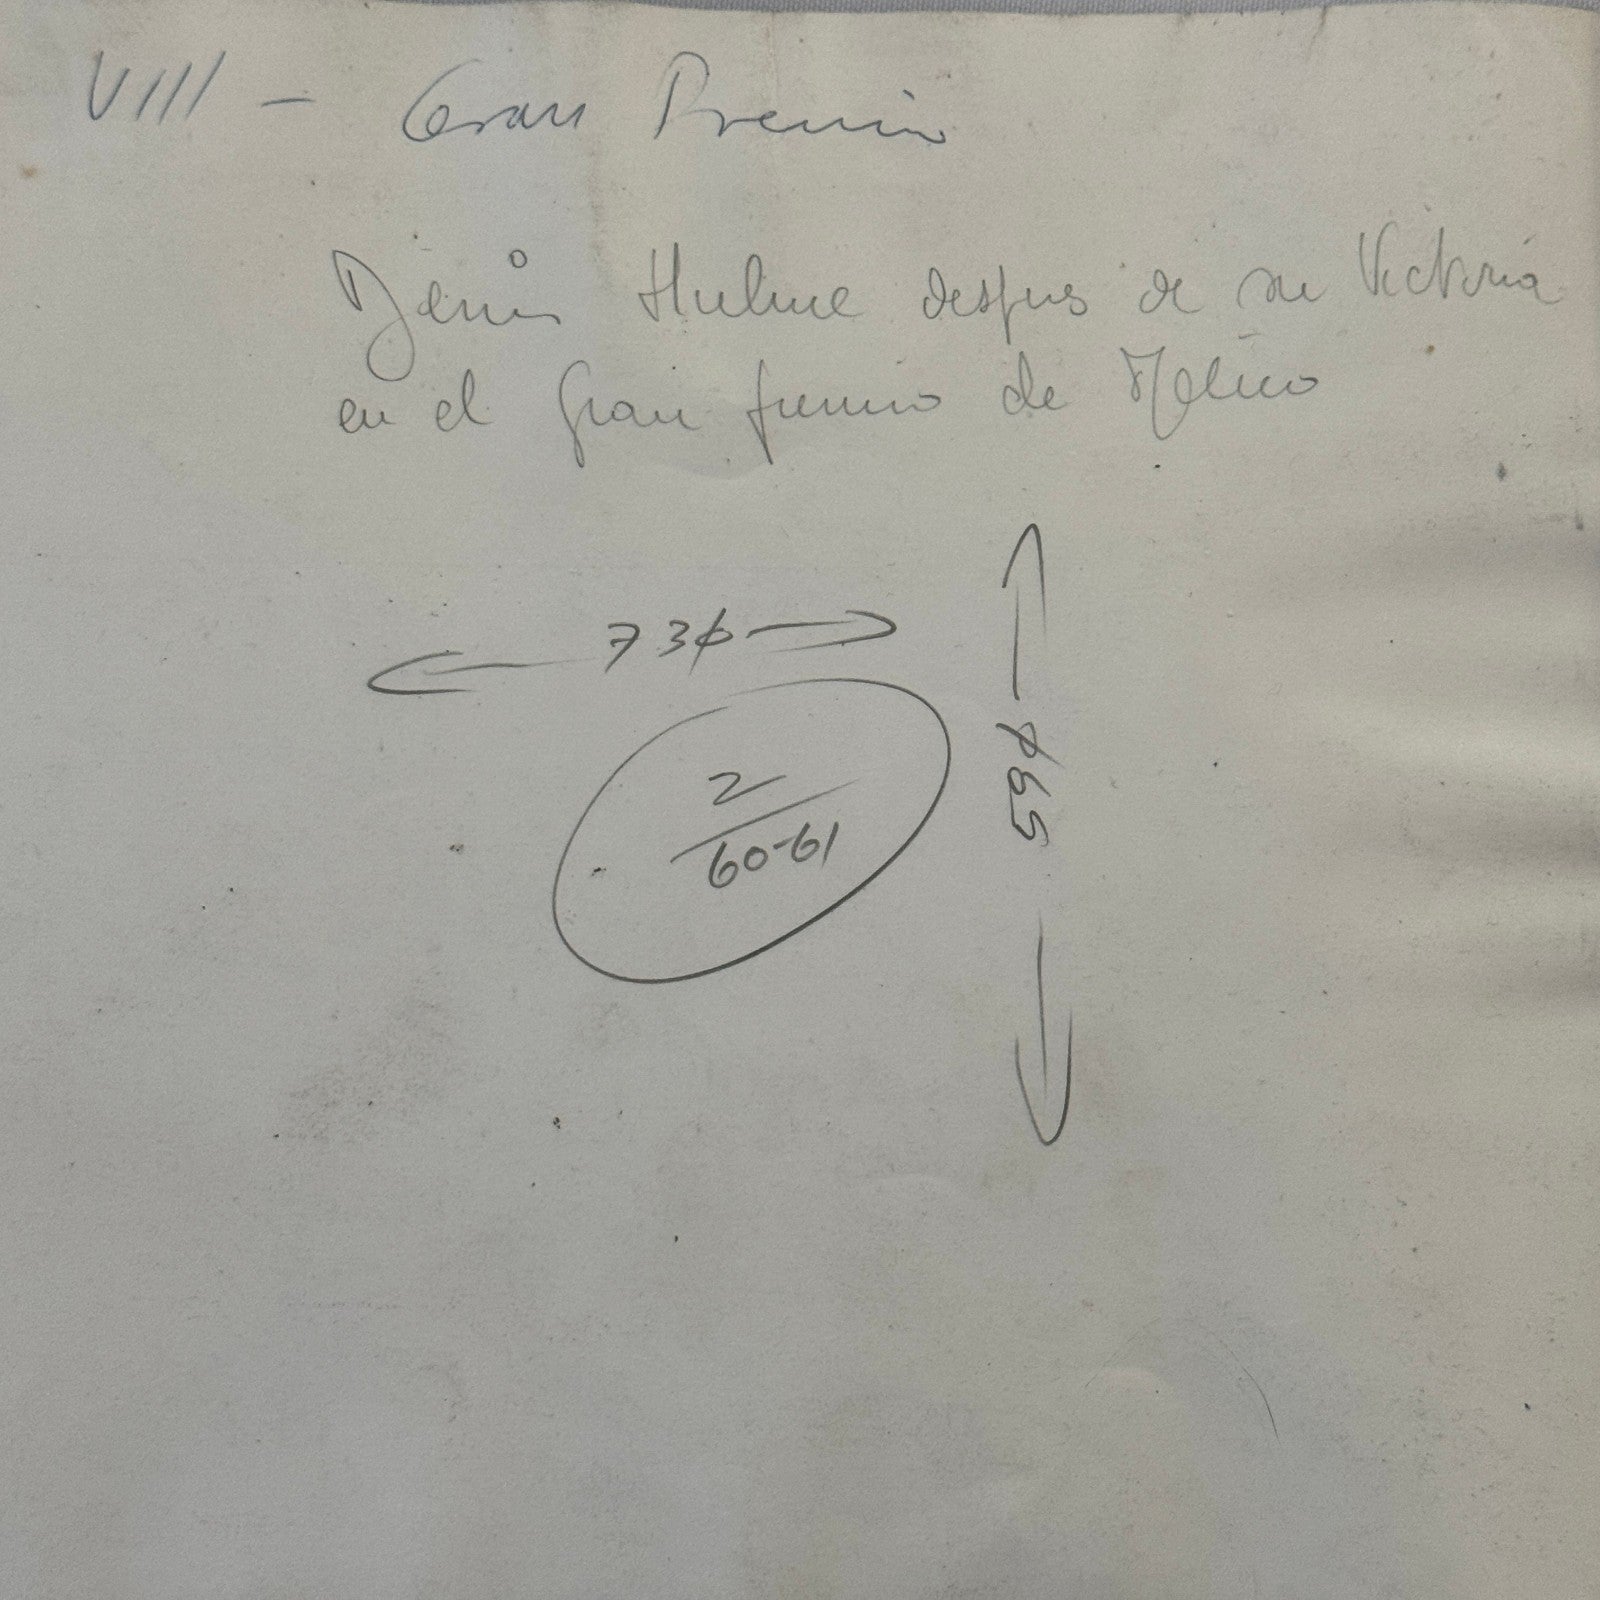 VIII - Gran Premio
Denis Hulme despues de su Victoria
en el Gran premio de Mejico
730
590
2
60-61